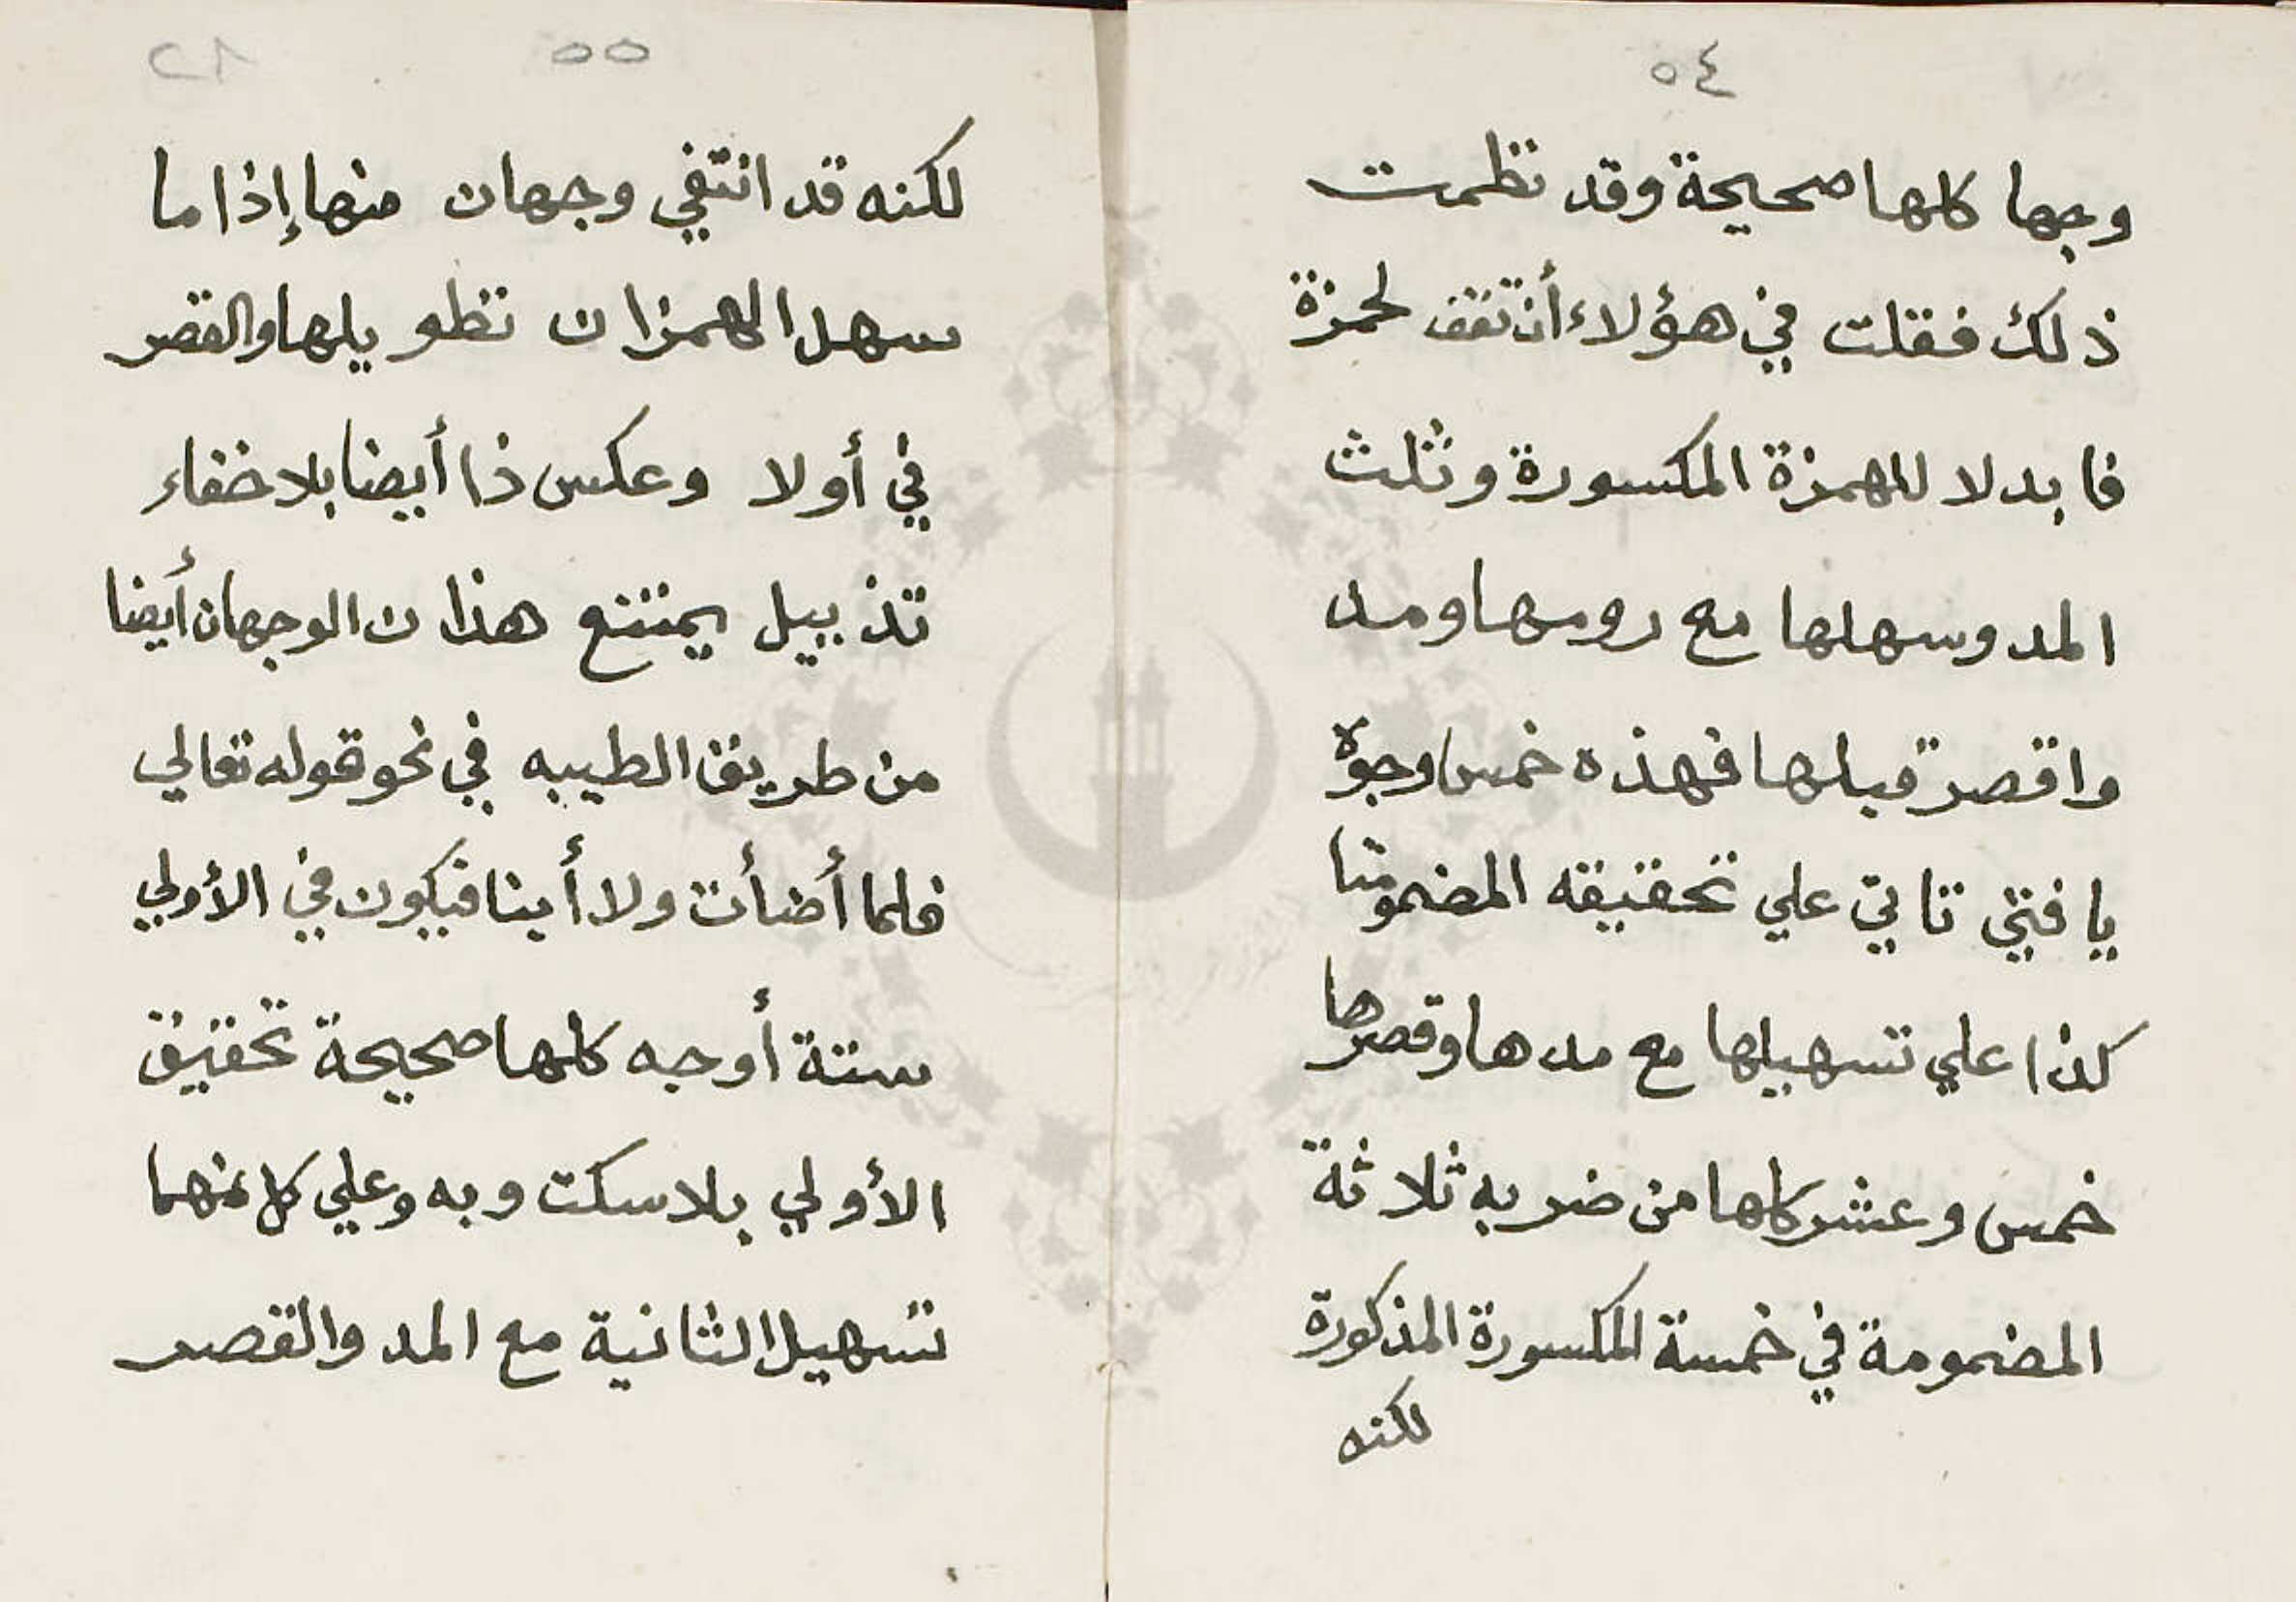 ٥٤
وجها كلها صحيحة وقد نظمت
ذلك فقلت في هؤلاء أن تقف لحمزة
فابدلا للهمزة المكسورة وثلث
المد وسهلها مع رومها ومد
واقصر قبلها فهذه خمس وجوه
يا فتي تاتي علي تحقيقه المضمومتا
كذا علي تسهيلها مع مدها وقصرها
خمس وعشر كلها من ضربه ثلاثة
المضمومة في خمسة المكسورة المذكورة
لكنه
٥٥
٢٨
لكنه قد انتفي وجهان منها إذا ما
سهل الهمزان تطويلها والقصر
في أولا وعكس ذا أيضا بلا خفاء
تذييل يمتنع هذان الوجهان أيضا
من طريق الطيبه في نحو قوله تعالي
فلما أضأت ولا أينا فيكون في الأولي
ستة أوجه كلها صحيحة تحقيق
الأولي بلا سكت وبه وعلي كل منهما
تسهيل الثانية مع المد والقصر